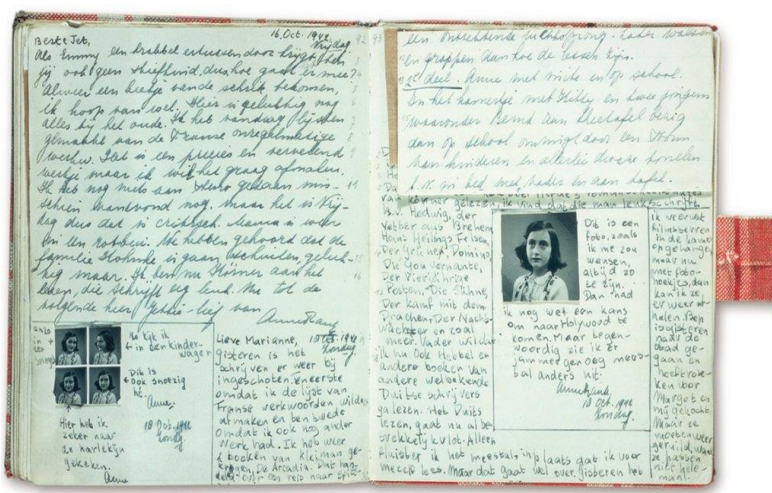 16 Oct. 1942
Vrijdag
Beste Jet,
Als Emmy een krabbel ertussen door krijgt, ben
jij ook geen stiefkind, dus hoe gaat er mee?
Alweer een beetje van de schrik bekomen,
ik hoop van wel. Hier is gelukkig nog
alles bij het oude. Ik heb vandaag lijsten
gemaakt van de Franse onregelmatige
werkw. Dat is een precies en vervelend
werkje maar ik wil het graag afmaken.
Ik heb nog niets aan Steno gedaan mis-
schien vanavond nog, maar het is Vrij-
dag dus dat is critisch. Mama is weer
We hebben gehoord dat de
familie is gaan schuilen, geluk-
kig maar. Ik ben nu Körner aan het
lezen, die schrijft erg leuk. Nu tot de
volgende keer lief van
Anne Frank
Hier heb ik
zeker naar
de harlekijn
gekeken.
Anne
Nu kijk ik
in een kinder-
wagen
Dit is
ook snoezig
hè
Anne.
18 Oct. 1942
Zondag
Lieve Marianne,
Zondag
Gisteren is het
schrijven er weer bij
ingeschoten, eneerste
omdat ik de lijst van
Franse werkwoorden wilde
afmaken en ten twede
omdat ik ook nog ander
werk had. Ik heb weer
2 boeken van kleiman ge-
kregen. De Arcadia. dat han-
delt over een reis naar
2e deel. Anne met niets en op school.
In het kamertje met Kitty en twee jongens
waaronder Bernd aan theetafel bezig
dan op school omringd door een stroom
van kinderen en allerlei
b.v. in bed met vader en aan tafel.
Körner gelezen, ik vind dat die man leuk schrijft.
B.v. Hedwig, der
Vetter aus Bremen
Hans Heilings Felsen,
Der Grüne Domino,
Die Gouvernante,
Der Vierjährige
Posten. Die Sühne,
Der Kampf mit dem
Drachen. Der Nacht-
wächter en zoal
meer. Vader wil dat
ik nu ook Hebbel en
andere boeken van
andere welbekende
Duitse schrijvers
ga lezen. Het Duits
lezen, gaat nu al be-
trekkelijk vlot. Alleen
fluister ik het meestal inplaats dat ik voor
mezelf lees. Maar dat gaat wel over. Gisteren heb
Dit is een
foto, zoals
ik me zou
wensen,
altijd zo
te zijn.
Dan had
ik nog wel een kans
om naar Holywood te
komen. Maar tegen-
woordig zie ik er
jammer genoeg mees-
tal anders uit.
Annefrank.
18 Oct. 1942
Zondag.
ik weer wat
filmsterren
in de kamer
opgehangen,
maar nu
met foto-
hoekjes, dan
kan ik ze
er weer af-
halen.
is gisteren
naar de
stad ge-
gaan en
heeft rok-
ken voor
Margot en
mij gekocht.
Maar ze
moeten weer
geruild, want
ze passen
niet hele-
maal.